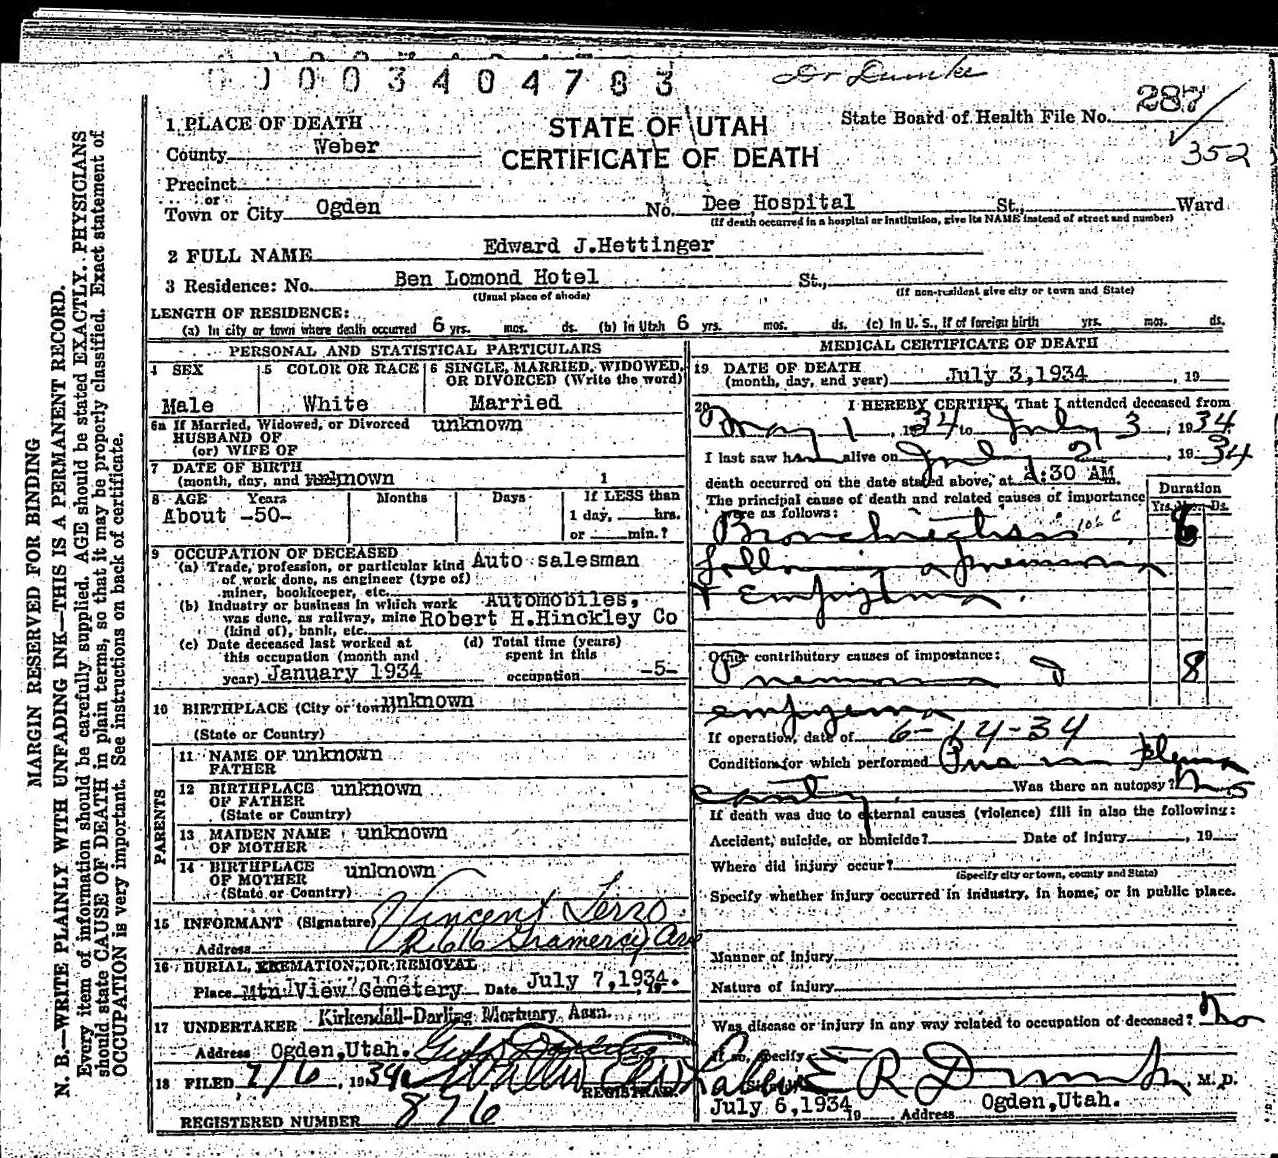 0003404783
Dr Dumke
287
352
STATE OF UTAH
CERTIFICATE OF DEATH
State Board of Health File No.
1 PLACE OF DEATH
County Weber
Precinct
or
Town or City Ogden No. Dee Hospital St., Ward
(If death occurred in a hospital or institution, give its NAME instead of street and number)
2 FULL NAME Edward J.Hettinger
3 Residence: No. Ben Lomond Hotel St.,
(Usual place of abode) (If non-resident give city or town and State)
LENGTH OF RESIDENCE:
(a) In city or town where death occurred 6 yrs. mos. ds. (b) In Utah 6 yrs. mos. ds. (c) In U. S., if of foreign birth yrs. mos. ds.
PERSONAL AND STATISTICAL PARTICULARS
4 SEX
Male
5 COLOR OR RACE
White
6 SINGLE, MARRIED, WIDOWED,
OR DIVORCED (Write the word)
Married
6a If Married, Widowed, or Divorced unknown
HUSBAND OF
(or) WIFE OF
7 DATE OF BIRTH
(month, day, and unknown 1
8 AGE Years Months Days If LESS than
About -50- 1 day, hrs.
or min.?
9 OCCUPATION OF DECEASED
(a) Trade, profession, or particular kind Auto salesman
of work done, as engineer (type of)
miner, bookkeeper, etc.
(b) Industry or business in which work Automobiles,
was done, as railway, mine Robert H.Hinckley Co
(kind of), bank, etc.
(c) Date deceased last worked at
this occupation (month and
year) January 1934
(d) Total time (years)
spent in this
occupation -5-
10 BIRTHPLACE (City or town) unknown
(State or Country)
PARENTS
11 NAME OF unknown
FATHER
12 BIRTHPLACE unknown
OF FATHER
(State or Country)
13 MAIDEN NAME unknown
OF MOTHER
14 BIRTHPLACE unknown
OF MOTHER
(State or Country)
15 INFORMANT (Signature) Vincent Terzo
Address 2616 Gramercy Ave
16 BURIAL, CREMATION, OR REMOVAL
Place Mtn View Cemetery Date July 7,1934. 19
17 UNDERTAKER Kirkendall-Darling Mortuary Assn.
Address Ogden,Utah.
18 FILED 7/6, 1934
REGISTRAR.
REGISTERED NUMBER 876
MEDICAL CERTIFICATE OF DEATH
19 DATE OF DEATH
(month, day, and year) July 3,1934, 19
20 I HEREBY CERTIFY, That I attended deceased from
May 1, 1934 to July 3, 1934
I last saw him alive on July 2, 1934
death occurred on the date stated above, at :30 AM.
The principal cause of death and related causes of importance
were as follows:
Duration
Yrs. Mo. Ds.
Bronchiectasis 106 c 6
following pneumonia
+ Empyema
Other contributory causes of importance:
Pneumonia 8
empyema
If operation, date of 6-14-34
Condition for which performed Pus in pleura
cavity. Was there an autopsy? No
If death was due to external causes (violence) fill in also the following:
Accident, suicide, or homicide? Date of injury, 19
Where did injury occur?
(Specify city or town, county and State)
Specify whether injury occurred in industry, in home, or in public place.
Manner of injury
Nature of injury
Was disease or injury in any way related to occupation of deceased? No
If so, specify
E R Dumke M. D.
July 6,1934 19 Address Ogden,Utah.
MARGIN RESERVED FOR BINDING
N. B.—WRITE PLAINLY WITH UNFADING INK—THIS IS A PERMANENT RECORD.
Every item of information should be carefully supplied. AGE should be stated EXACTLY. PHYSICIANS
should state CAUSE OF DEATH in plain terms, so that it may be properly classified. Exact statement of
OCCUPATION is very important. See instructions on back of certificate.